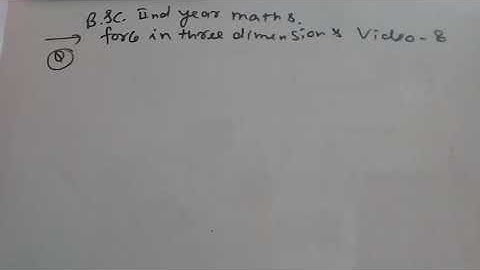 B.SC. IInd year maths.
→ force in three dimensions Video-8
Q